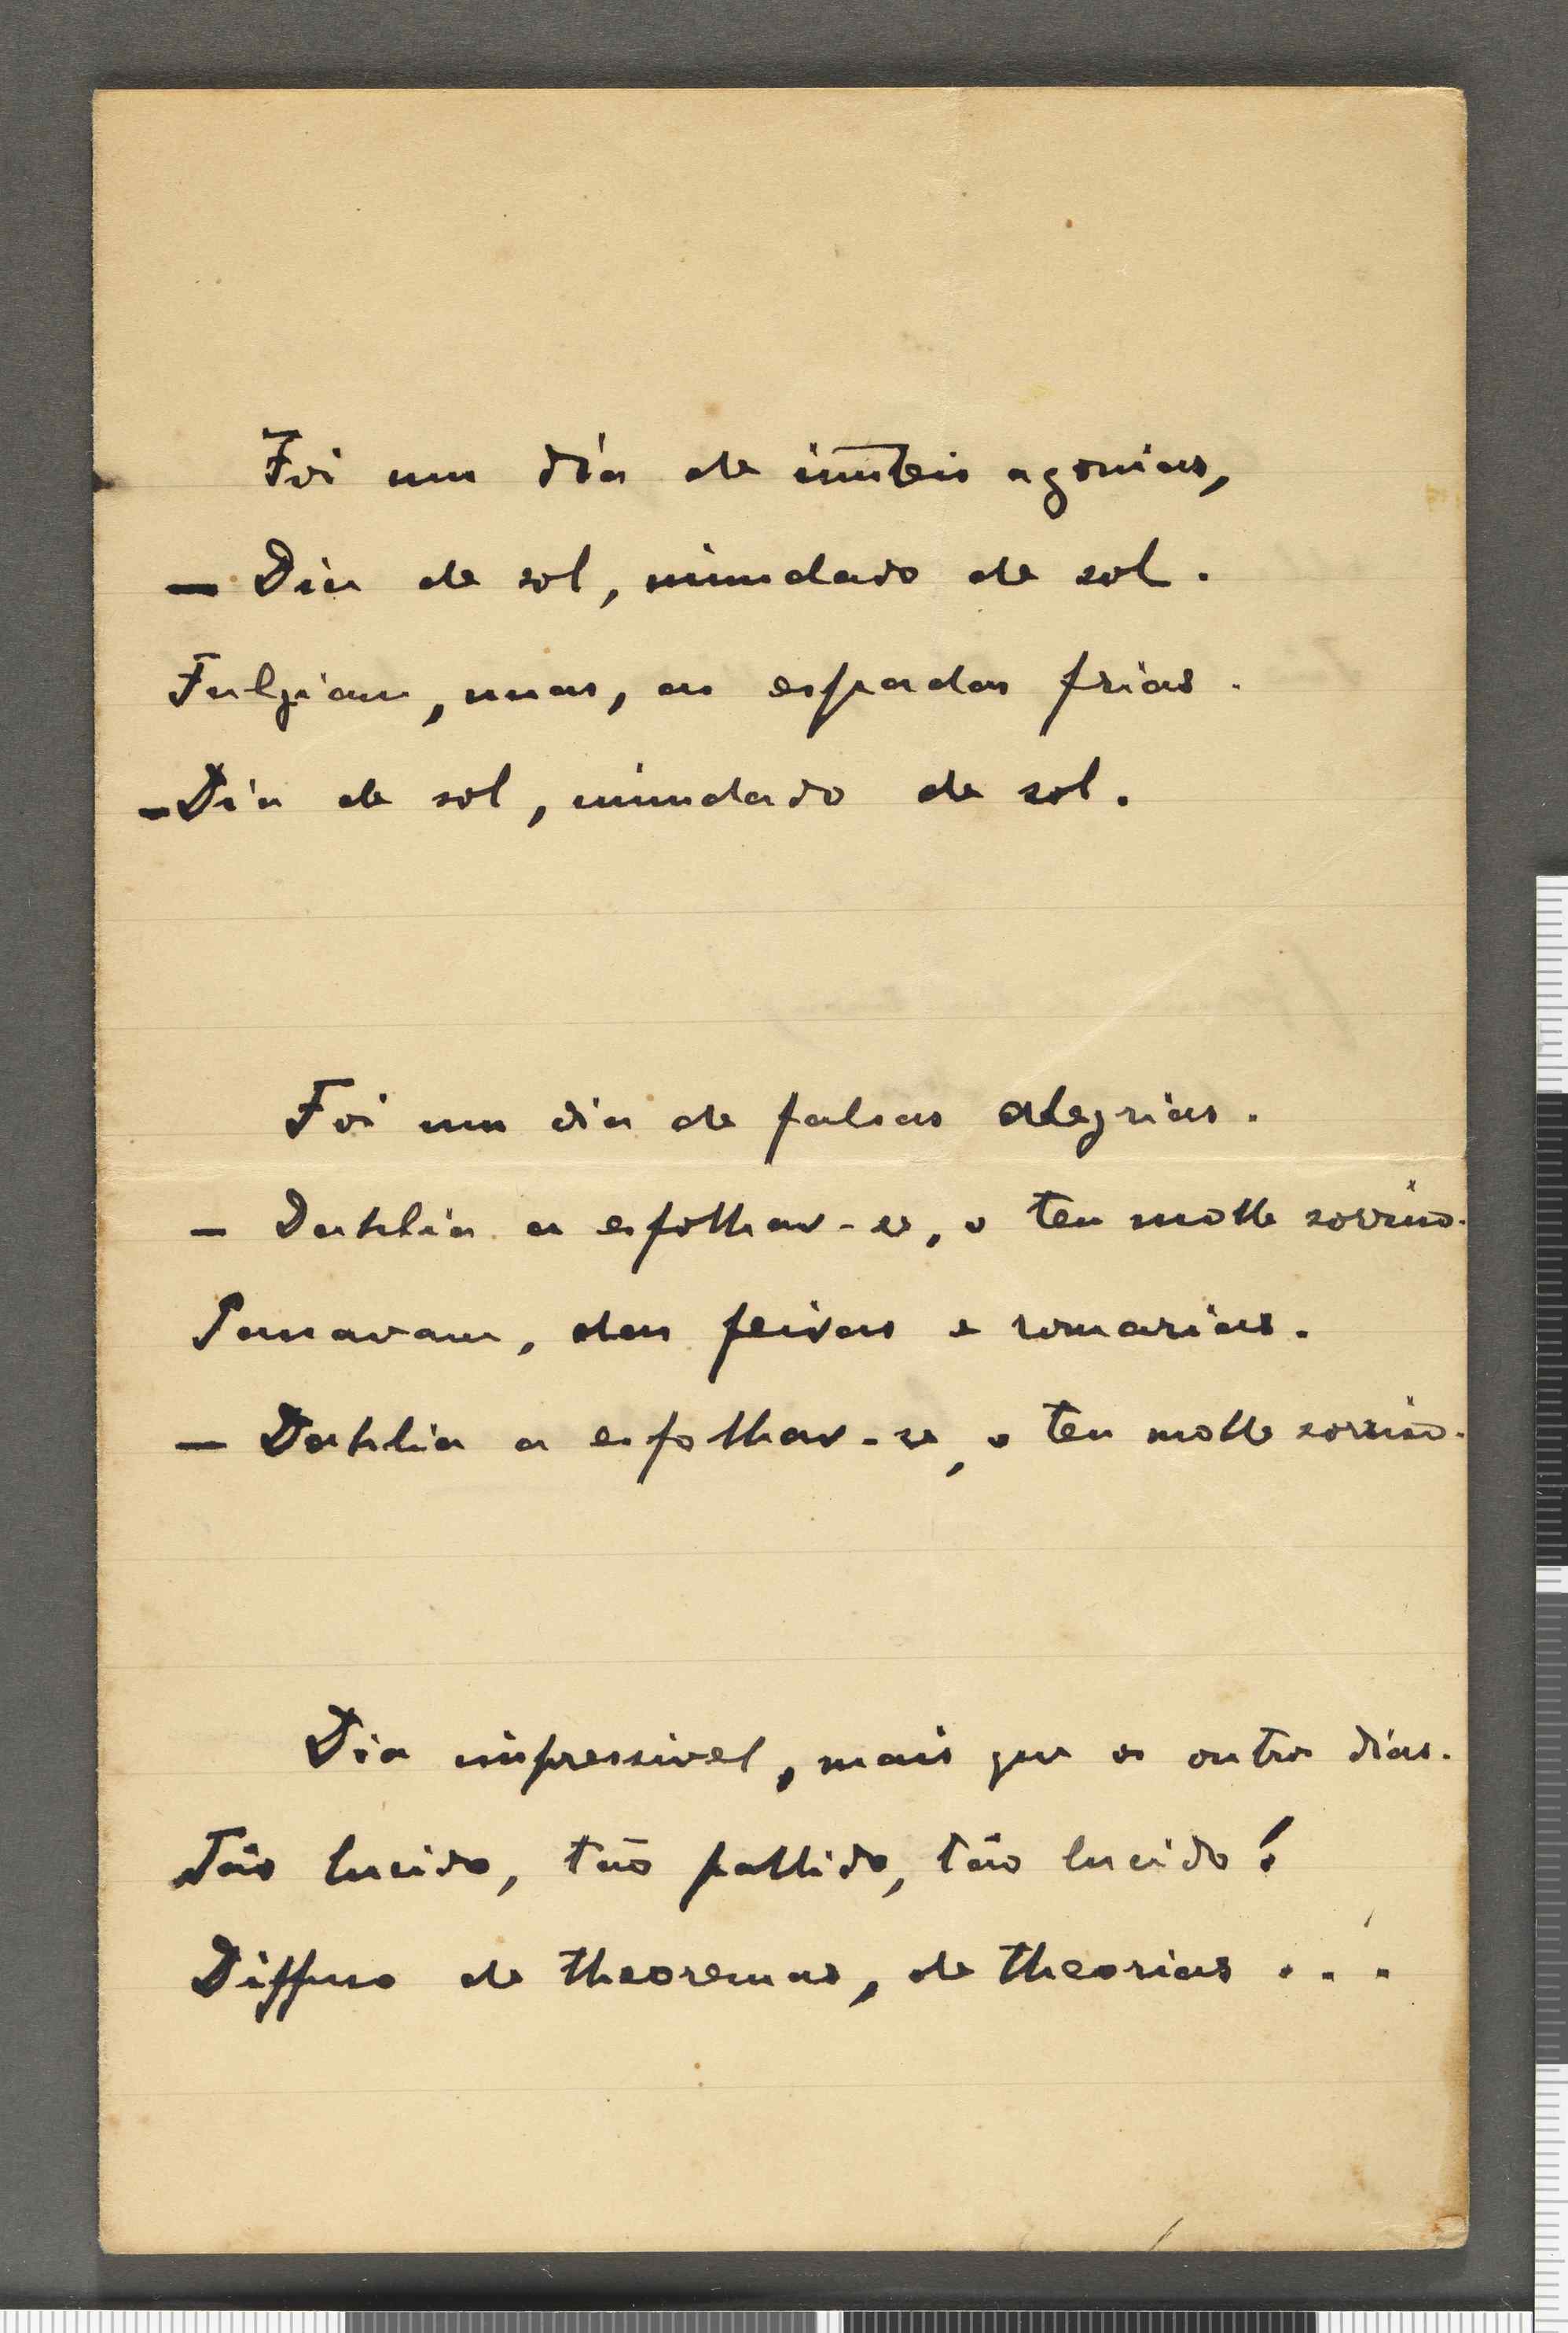 Foi um dia de inuteis agonias,
— Dia de sol, inundado de sol.
Fulgiam, nuas, as espadas frias.
— Dia de sol, inundado de sol.
Foi um dia de falsas alegrias.
— Dahlia a esfolhar-se, o teu molle sorriso.
Passavam, das feiras e romarias.
— Dahlia a esfolhar-se, o teu molle sorriso.
Dia impressivel, mais que os outros dias.
Tão lucido, tão pallido, tão lucido!
Diffuso de theoremas, de theorias...